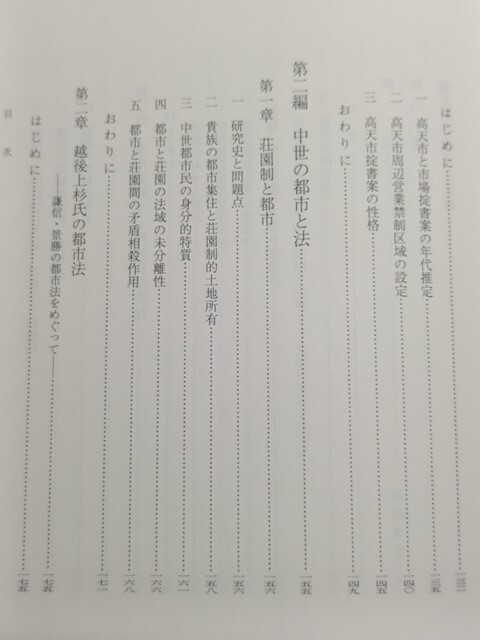 はじめに……一三一
一 高天市と市場掟書案の年代推定……一三五
二 高天市周辺営業禁制区域の設定……一四〇
三 高天市掟書案の性格……一四五
おわりに……一四九
第二編 中世の都市と法……一五五
第一章 荘園制と都市……一五六
一 研究史と問題点……一五六
二 貴族の都市集住と荘園制的土地所有……一五八
三 中世都市民の身分的特質……一六一
四 都市と荘園の法域の未分離性……一六六
五 都市と荘園間の矛盾相殺作用……一六八
おわりに……一七一
第二章 越後上杉氏の都市法
――謙信・景勝の都市法をめぐって――……一七五
はじめに……一七五
目次